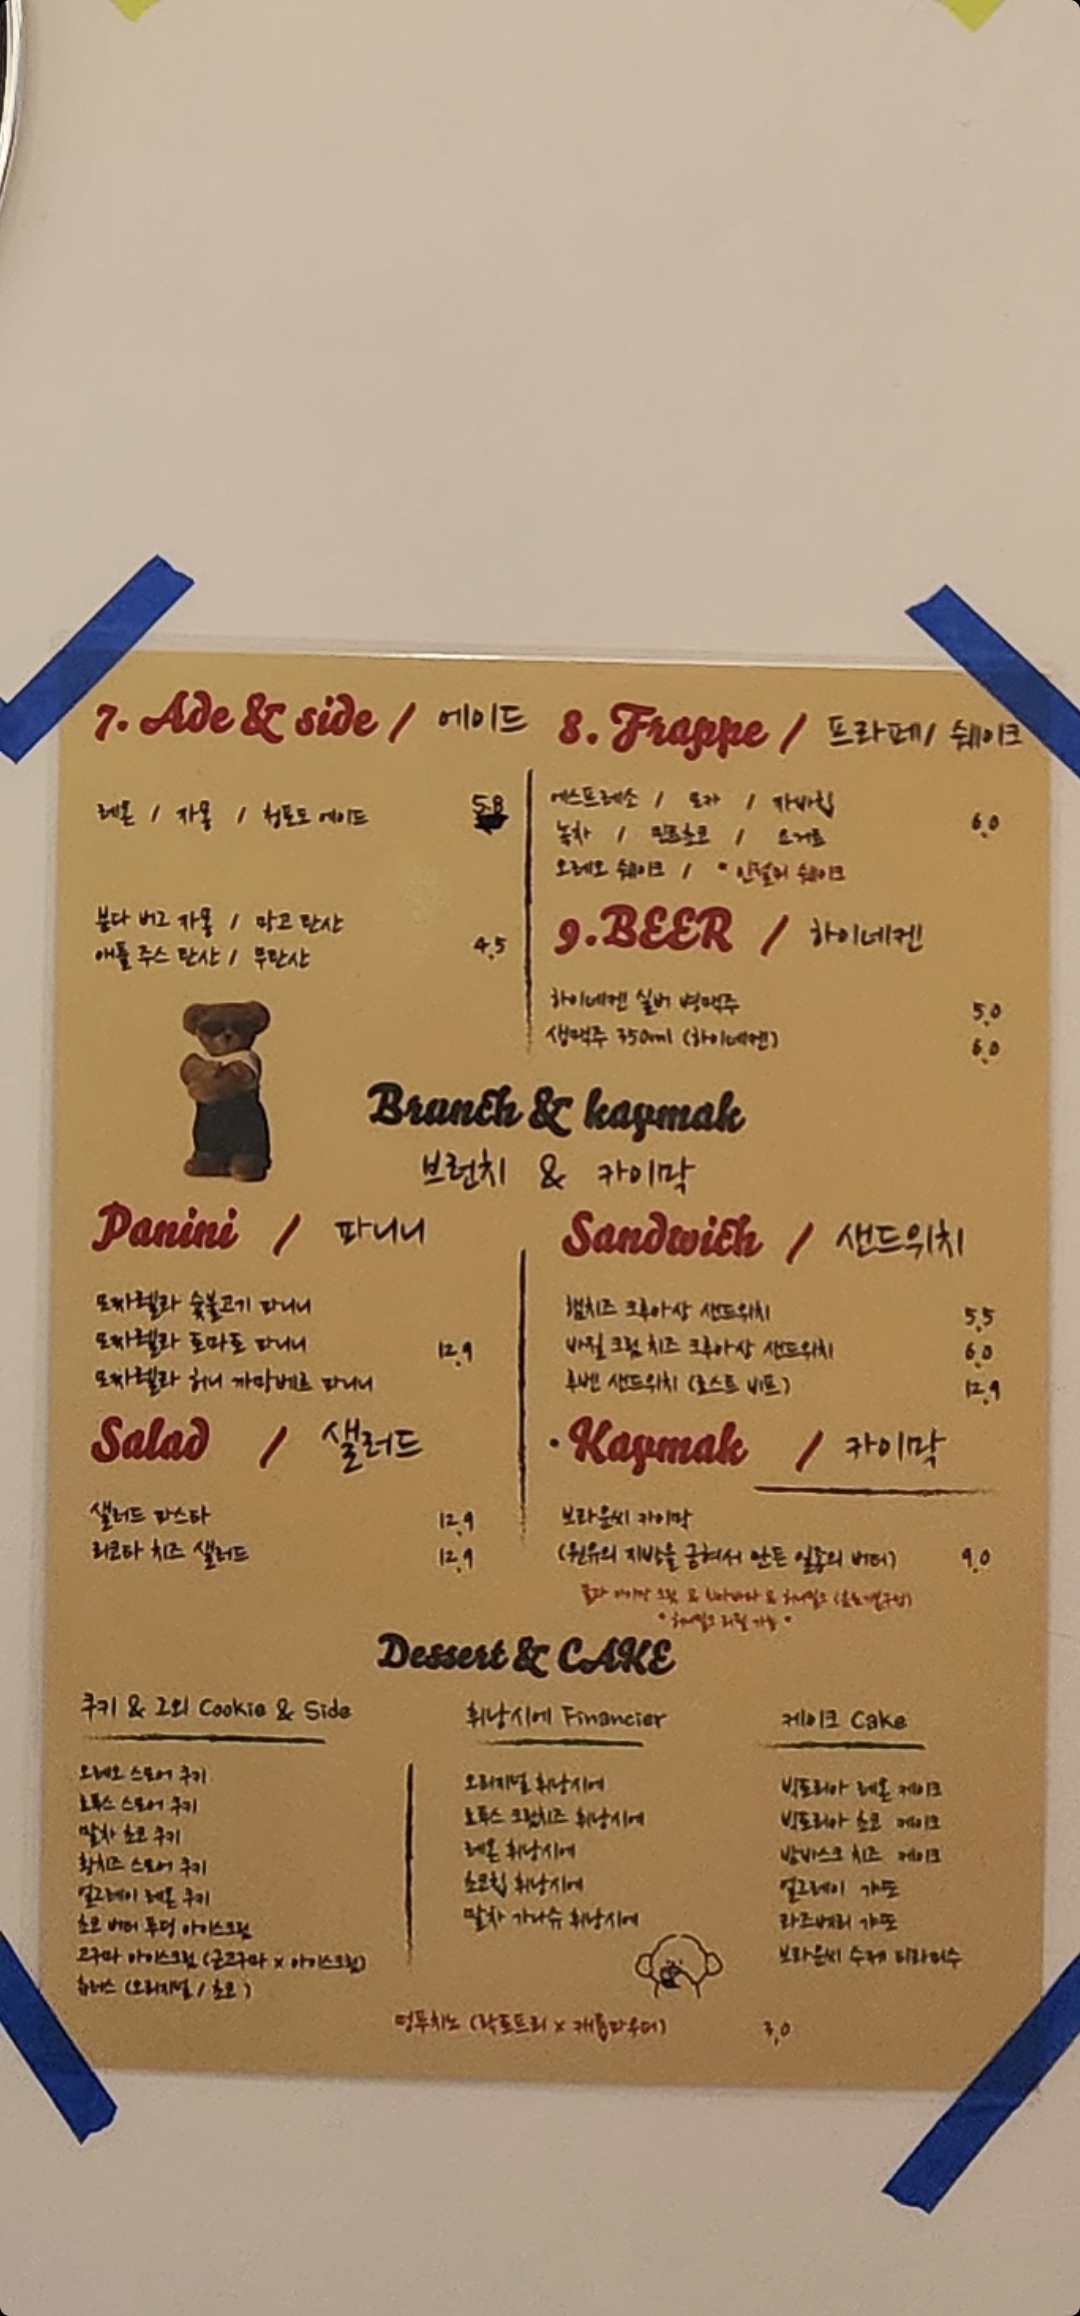 7. Ade & side / 에이드
레몬 / 자몽 / 청포도 에이드 5.8
분다버그 자몽 / 망고 탄산
애플 주스 탄산 / 무탄산 4.5
8. Frappe / 프라페 / 쉐이크
에스프레소 / 모카 / 자바칩
녹차 / 민트초코 / 요거트 6.0
오레오 쉐이크 / * 인절미 쉐이크
9. BEER / 하이네켄
하이네켄 실버 병맥주 5.0
생맥주 350ml (하이네켄) 6.0
Brunch & kaymak
브런치 & 카이막
Panini / 파니니
모짜렐라 숯불고기 파니니
모짜렐라 토마토 파니니 12.9
모짜렐라 허니 까망베르 파니니
Sandwich / 샌드위치
햄치즈 크루아상 샌드위치 5.5
바질 크림 치즈 크루아상 샌드위치 6.0
루벤 샌드위치 (로스트 비프) 12.9
Salad / 샐러드
샐러드 파스타 12.9
리코타 치즈 샐러드 12.9
· Kaymak / 카이막
브라운씨 카이막
(원유의 지방을 굳혀서 만든 일종의 버터) 9.0
Dessert & CAKE
쿠키 & 그외 Cookie & Side
오레오 스모어 쿠키
로투스 스모어 쿠키
말차 초코 쿠키
황치즈 스모어 쿠키
얼그레이 레몬 쿠키
초코 버터 푸딩 아이스크림
고구마 아이스크림 (군고구마 x 아이스크림)
츄러스 (오리지널 / 초코)
휘낭시에 Financier
오리지널 휘낭시에
로투스 크림치즈 휘낭시에
레몬 휘낭시에
초코칩 휘낭시에
말차 가나슈 휘낭시에
케이크 Cake
빅토리아 레몬 케이크
빅토리아 초코 케이크
바스크 치즈 케이크
얼그레이 갸또
라즈베리 갸또
브라운씨 수제 티라미수
멍푸치노 (락토프리 x 캐롭파우더) 3.0